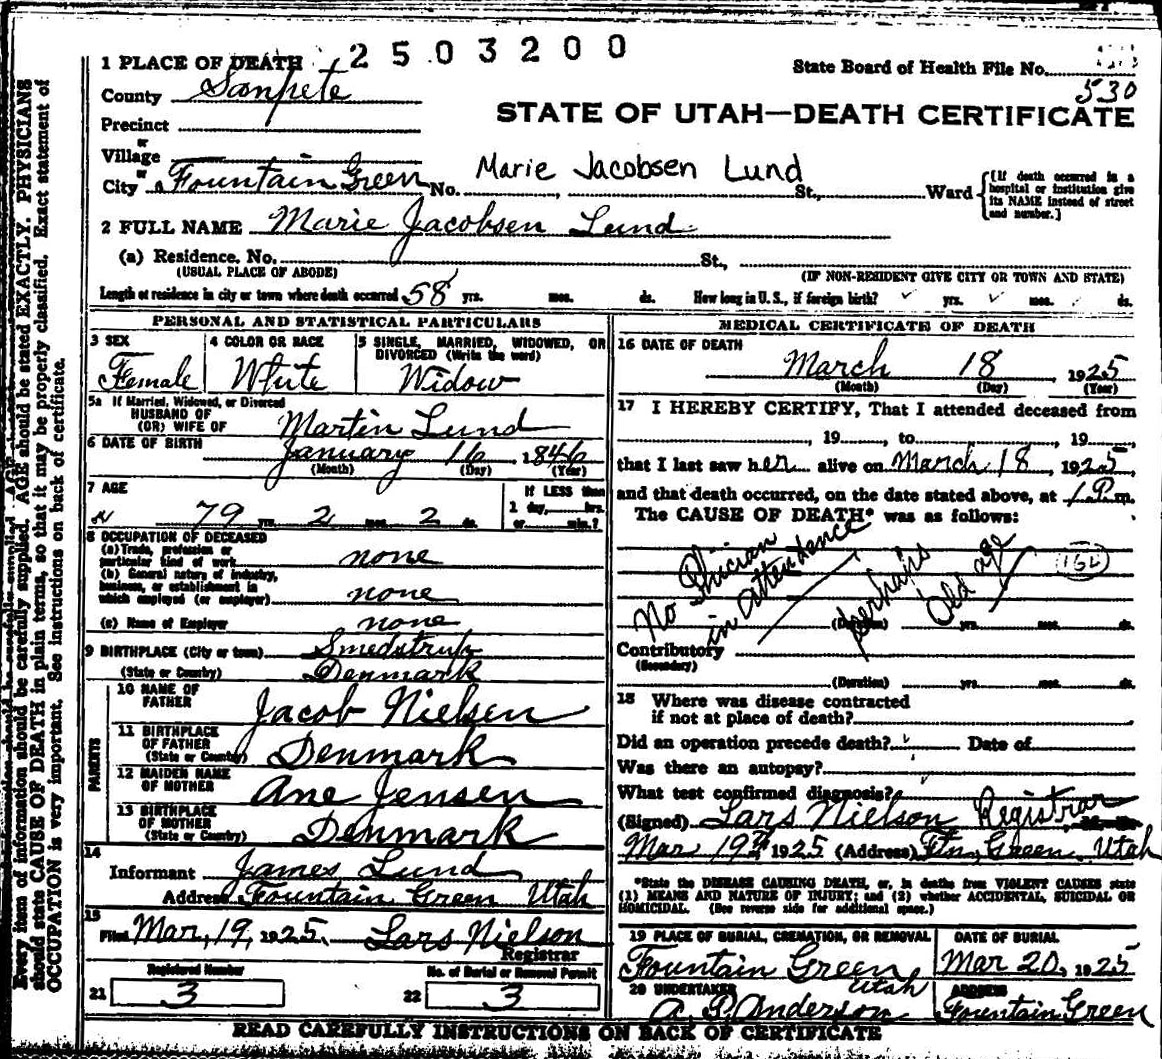 2503200
1 PLACE OF DEATH
State Board of Health File No.
530
County Sanpete
STATE OF UTAH—DEATH CERTIFICATE
Precinct
or
Village
or
City Fountain Green No. Marie Jacobsen Lund St., Ward
{If death occurred in a hospital or institution give its NAME instead of street and number.]
2 FULL NAME Marie Jacobsen Lund
(a) Residence. No. St.,
(USUAL PLACE OF ABODE) (IF NON-RESIDENT GIVE CITY OR TOWN AND STATE)
Length of residence in city or town where death occurred 58 yrs. mos. ds. How long in U. S., if foreign birth? yrs. mos. ds.
PERSONAL AND STATISTICAL PARTICULARS
3 SEX Female
4 COLOR OR RACE White
5 SINGLE, MARRIED, WIDOWED, OR DIVORCED (Write the word) Widow
5a If Married, Widowed, or Divorced
HUSBAND OF
(OR) WIFE OF Martin Lund
6 DATE OF BIRTH January 16, 1846
(Month) (Day) (Year)
7 AGE 79 yrs. 2 mos. 2 ds.
If LESS than 1 day, hrs. or min.?
8 OCCUPATION OF DECEASED
(a) Trade, profession or particular kind of work none
(b) General nature of industry, business, or establishment in which employed (or employer) none
(c) Name of Employer none
9 BIRTHPLACE (City or town) Smedstrup
(State or Country) Denmark
PARENTS
10 NAME OF FATHER Jacob Nielsen
11 BIRTHPLACE OF FATHER (State or Country) Denmark
12 MAIDEN NAME OF MOTHER Ane Jensen
13 BIRTHPLACE OF MOTHER (State or Country) Denmark
14
Informant James Lund
Address Fountain Green Utah
15
Filed Mar, 19, 1925. Lars Nielson
Registrar
Registered Number
21 3
No. of Burial or Removal Permit
22 3
MEDICAL CERTIFICATE OF DEATH
16 DATE OF DEATH
March 18, 1925
(Month) (Day) (Year)
17 I HEREBY CERTIFY, That I attended deceased from
, 19 , to , 19 ,
that I last saw her alive on March 18, 1925,
and that death occurred, on the date stated above, at 1 P.m.
The CAUSE OF DEATH* was as follows:
No Phician in attendance
perhaps Old age
164
(Duration) yrs. mos. ds.
Contributory
(Secondary)
(Duration) yrs. mos. ds.
18 Where was disease contracted
if not at place of death?
Did an operation precede death? Date of
Was there an autopsy?
What test confirmed diagnosis?
(Signed) Lars Nielson Registrar
Mar 19th 1925 (Address) Ftn, Green. Utah
*State the DISEASE CAUSING DEATH, or, in deaths from VIOLENT CAUSES state
(1) MEANS AND NATURE OF INJURY; and (2) whether ACCIDENTAL, SUICIDAL OR
HOMICIDAL. (See reverse side for additional space.)
19 PLACE OF BURIAL, CREMATION, OR REMOVAL
Fountain Green, Utah
DATE OF BURIAL
Mar 20, 1925
20 UNDERTAKER
A. P. Anderson
ADDRESS
Fountain Green
READ CAREFULLY INSTRUCTIONS ON BACK OF CERTIFICATE
Every item of information should be carefully supplied. AGE should be stated EXACTLY. PHYSICIANS
should state CAUSE OF DEATH in plain terms, so that it may be properly classified. Exact statement of
OCCUPATION is very important. See instructions on back of certificate.